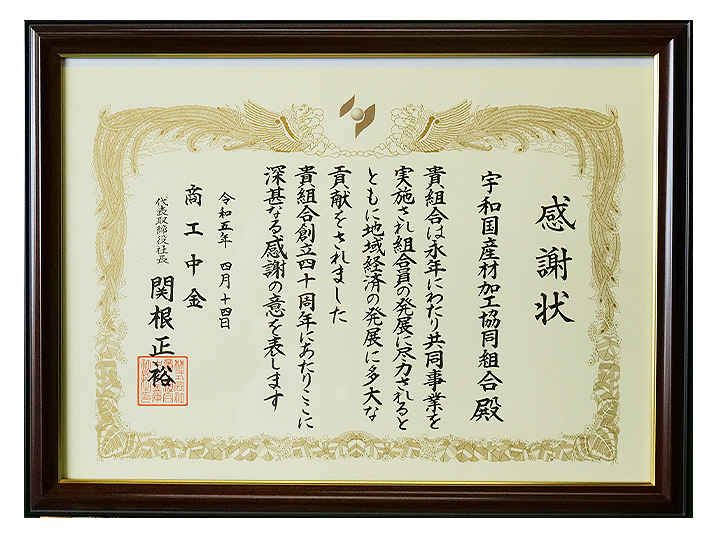 感謝状
宇和国産材加工協同組合殿
貴組合は永年にわたり共同事業を
実施され組合員の発展に尽力されると
ともに地域経済の発展に多大な
貢献をされました
貴組合創立四十周年にあたりここに
深甚なる感謝の意を表します
令和五年 四月十四日
商工中金
代表取締役社長
関根正裕